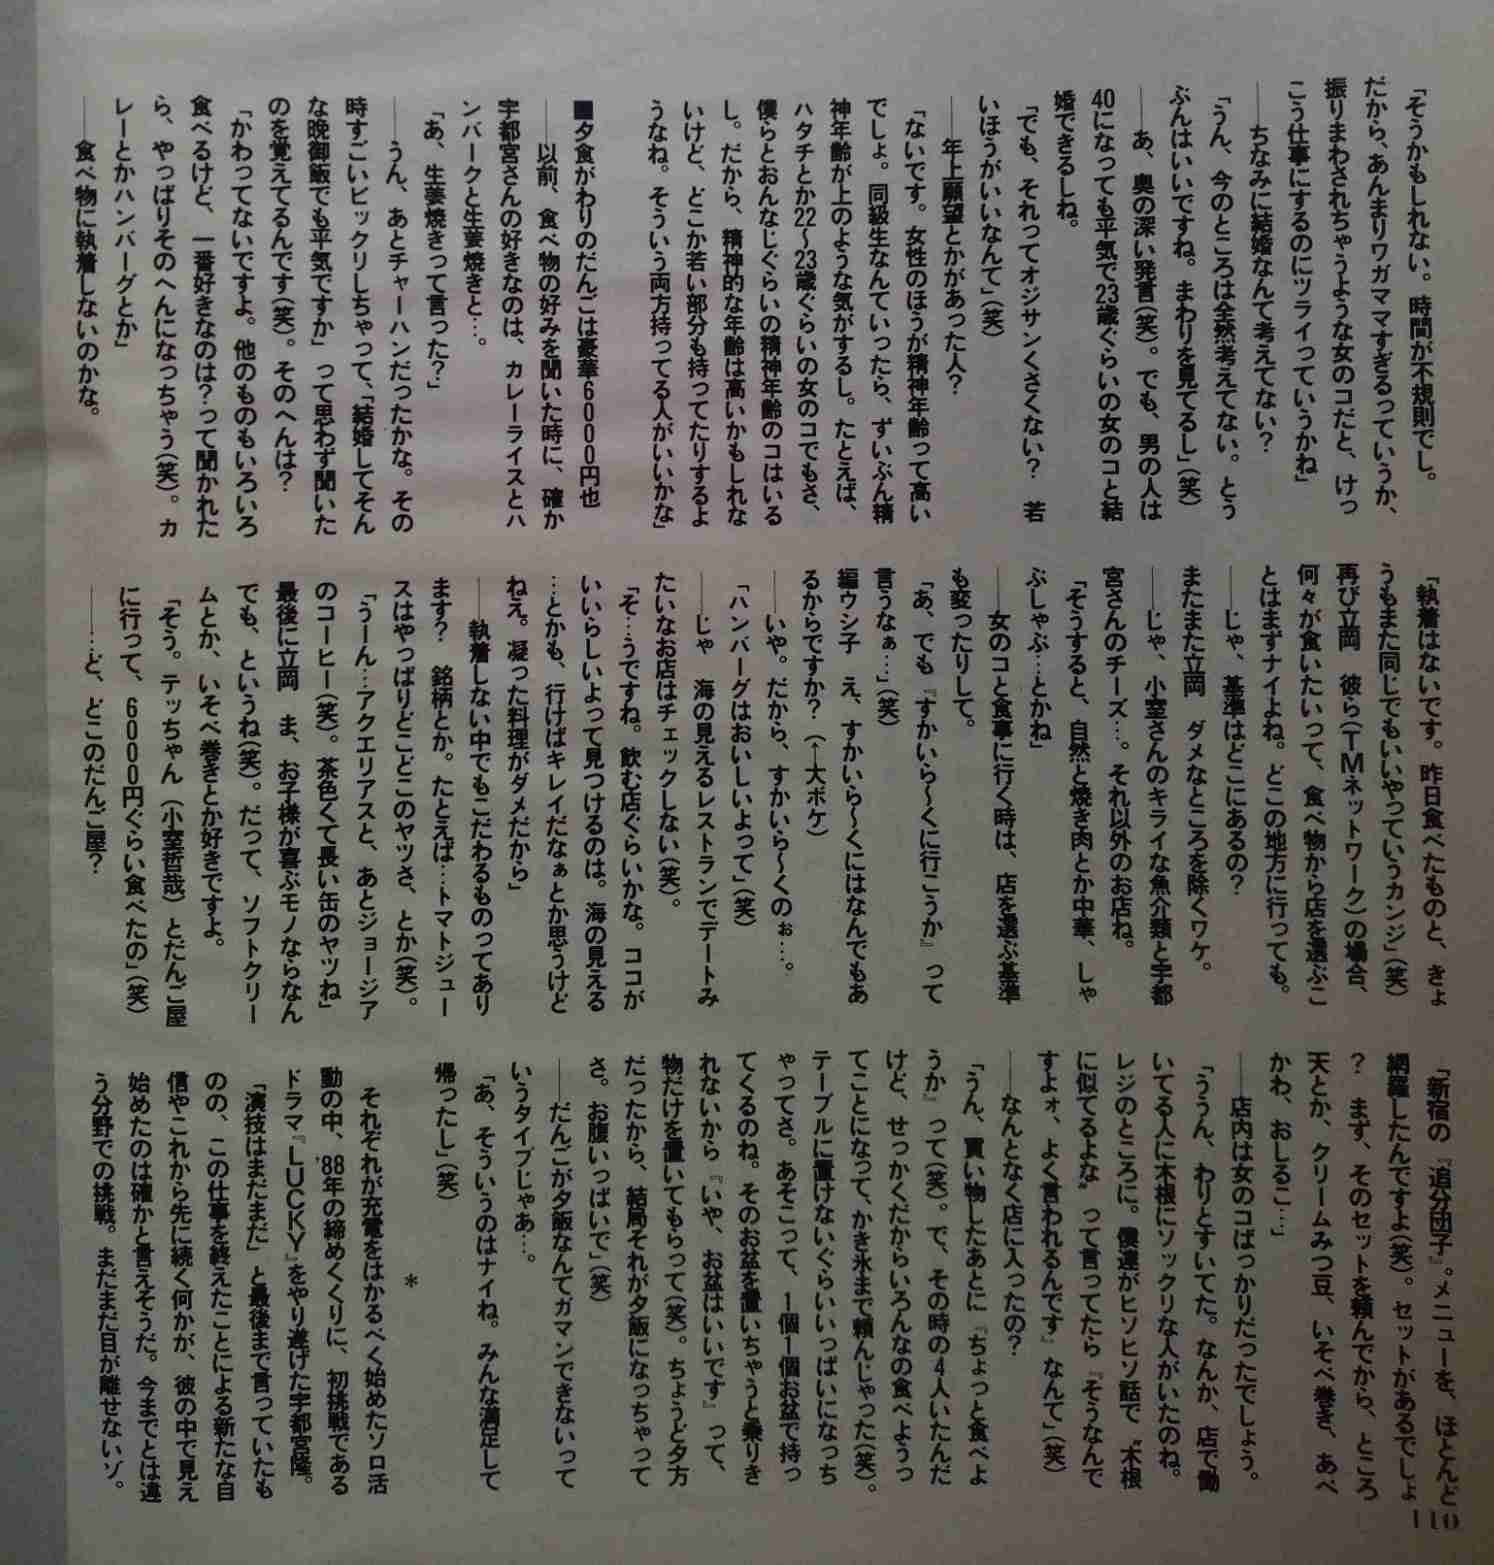 「そうかもしれない。時間が不規則でし。
だから、あんまりワガママすぎるっていうか、
振りまわされちゃうような女のコだと、けっ
こう仕事にするのにツライっていうかね」
――ちなみに結婚なんて考えてない？
「うん、今のところは全然考えてない。とう
ぶんはいいですね。まわりを見てるし」(笑)
――あ、奥の深い発言(笑)。でも、男の人は
40になっても平気で23歳ぐらいの女のコと結
婚できるしね。
「でも、それってオジサンくさくない？　若
いほうがいいなんて」(笑)
――年上願望とかがあった人？
「ないです。女性のほうが精神年齢って高い
でしょ。同級生なんていったら、ずいぶん精
神年齢が上のような気がするし。たとえば、
ハタチとか22〜23歳ぐらいの女のコでもさ、
僕らとおんなじぐらいの精神年齢のコはいる
し。だから、精神的な年齢は高いかもしれな
いけど、どこか若い部分も持ってたりするよ
うなね。そういう両方持ってる人がいいかな」
■夕食がわりのだんごは豪華6000円也
――以前、食べ物の好みを聞いた時に、確か
宇都宮さんの好きなのは、カレーライスとハ
ンバークと生姜焼きと…。
「あ、生姜焼きって言った？」
――うん、あとチャーハンだったかな。その
時すごいビックリしちゃって、「結婚してそん
な晩御飯でも平気ですか」って思わず聞いた
のを覚えてるんです(笑)。そのへんは？
「かわってないですよ。他のものもいろいろ
食べるけど、一番好きなのは？って聞かれた
ら、やっぱりそのへんになっちゃう(笑)。カ
レーとかハンバーグとか」
――食べ物に執着しないのかな。
「執着はないです。昨日食べたものと、きょ
うもまた同じでもいいやっていうカンジ」(笑)
再び立岡　彼ら(TMネットワーク)の場合、
何々が食いたいって、食べ物から店を選ぶこ
とはまずナイよね。どこの地方に行っても。
――じゃ、基準はどこにあるの？
またまた立岡　ダメなところを除くワケ。
――じゃ、小室さんのキライな魚介類と宇都
宮さんのチーズ…。それ以外のお店ね。
「そうすると、自然と焼き肉とか中華、しゃ
ぶしゃぶ…とかね」
――女のコと食事に行く時は、店を選ぶ基準
も変ったりして。
「あ、でも『すかいら〜くに行こうか』って
言うなぁ…」(笑)
編ウシ子　え、すかいら〜くにはなんでもあ
るからですか？(←大ボケ)
――いや。だから、すかいら〜くのぉ…。
「ハンバーグはおいしいよって」(笑)
――じゃ　海の見えるレストランでデートみ
たいなお店はチェックしない(笑)。
「そ…うですね。飲む店ぐらいかな。ココが
いいらしいよって見つけるのは。海の見える
…とかも、行けばキレイだなぁとか思うけど
ねえ。凝った料理がダメだから」
――執着しない中でもこだわるものってあり
ます？　銘柄とか。たとえば…トマトジュー
スはやっぱりどこどこのヤツさ、とか(笑)。
「うーん…アクエリアスと、あとジョージア
のコーヒー(笑)。茶色くて長い缶のヤツね」
最後に立岡　ま、お子様が喜ぶモノならなん
でも、というね(笑)。だって、ソフトクリー
ムとか、いそべ巻きとか好きですよ。
「そう。テッちゃん（小室哲哉）とだんご屋
に行って、6000円ぐらい食べたの」(笑)
――…ど、どこのだんご屋？
「新宿の『追分団子』。メニューを、ほとんど
網羅したんですよ(笑)。セットがあるでしょ
？　まず、そのセットを頼んでから、ところ
天とか、クリームみつ豆、いそべ巻き、あべ
かわ、おしるこ…」
――店内は女のコばっかりだったでしょう。
「ううん、わりとすいてた。なんか、店で働
いてる人に木根にソックリな人がいたのね。
レジのところに。僕達がヒソヒソ話で〝木根
に似てるよな〟って言ってたら『そうなんで
すよォ、よく言われるんです』なんて」(笑)
――なんとなく店に入ったの？
「うん、買い物したあとに『ちょっと食べよ
うか』って(笑)。で、その時の4人いたんだ
けど、せっかくだからいろんなの食べようっ
てことになって、かき氷まで頼んじゃった(笑)。
テーブルに置けないぐらいいっぱいになっち
ゃってさ。あそこって、1個1個お盆で持っ
てくるのね。そのお盆を置いちゃうと乗りき
れないから『いや、お盆はいいです』って、
物だけを置いてもらって(笑)。ちょうど夕方
だったから、結局それが夕飯になっちゃって
さ。お腹いっぱいで」(笑)
――だんごが夕飯なんてガマンできないって
いうタイプじゃあ…。
「あ、そういうのはナイね。みんな満足して
帰ったし」(笑)
＊
それぞれが充電をはかるべく始めたソロ活
動の中、'88年の締めくくりに、初挑戦である
ドラマ『LUCKY』をやり遂げた宇都宮隆。
「演技はまだまだ」と最後まで言っていたも
のの、この仕事を終えたことによる新たな自
信やこれから先に続く何かが、彼の中で見え
始めたのは確かと言えそうだ。今までとは違
う分野での挑戦。まだまだ目が離せないゾ。
110